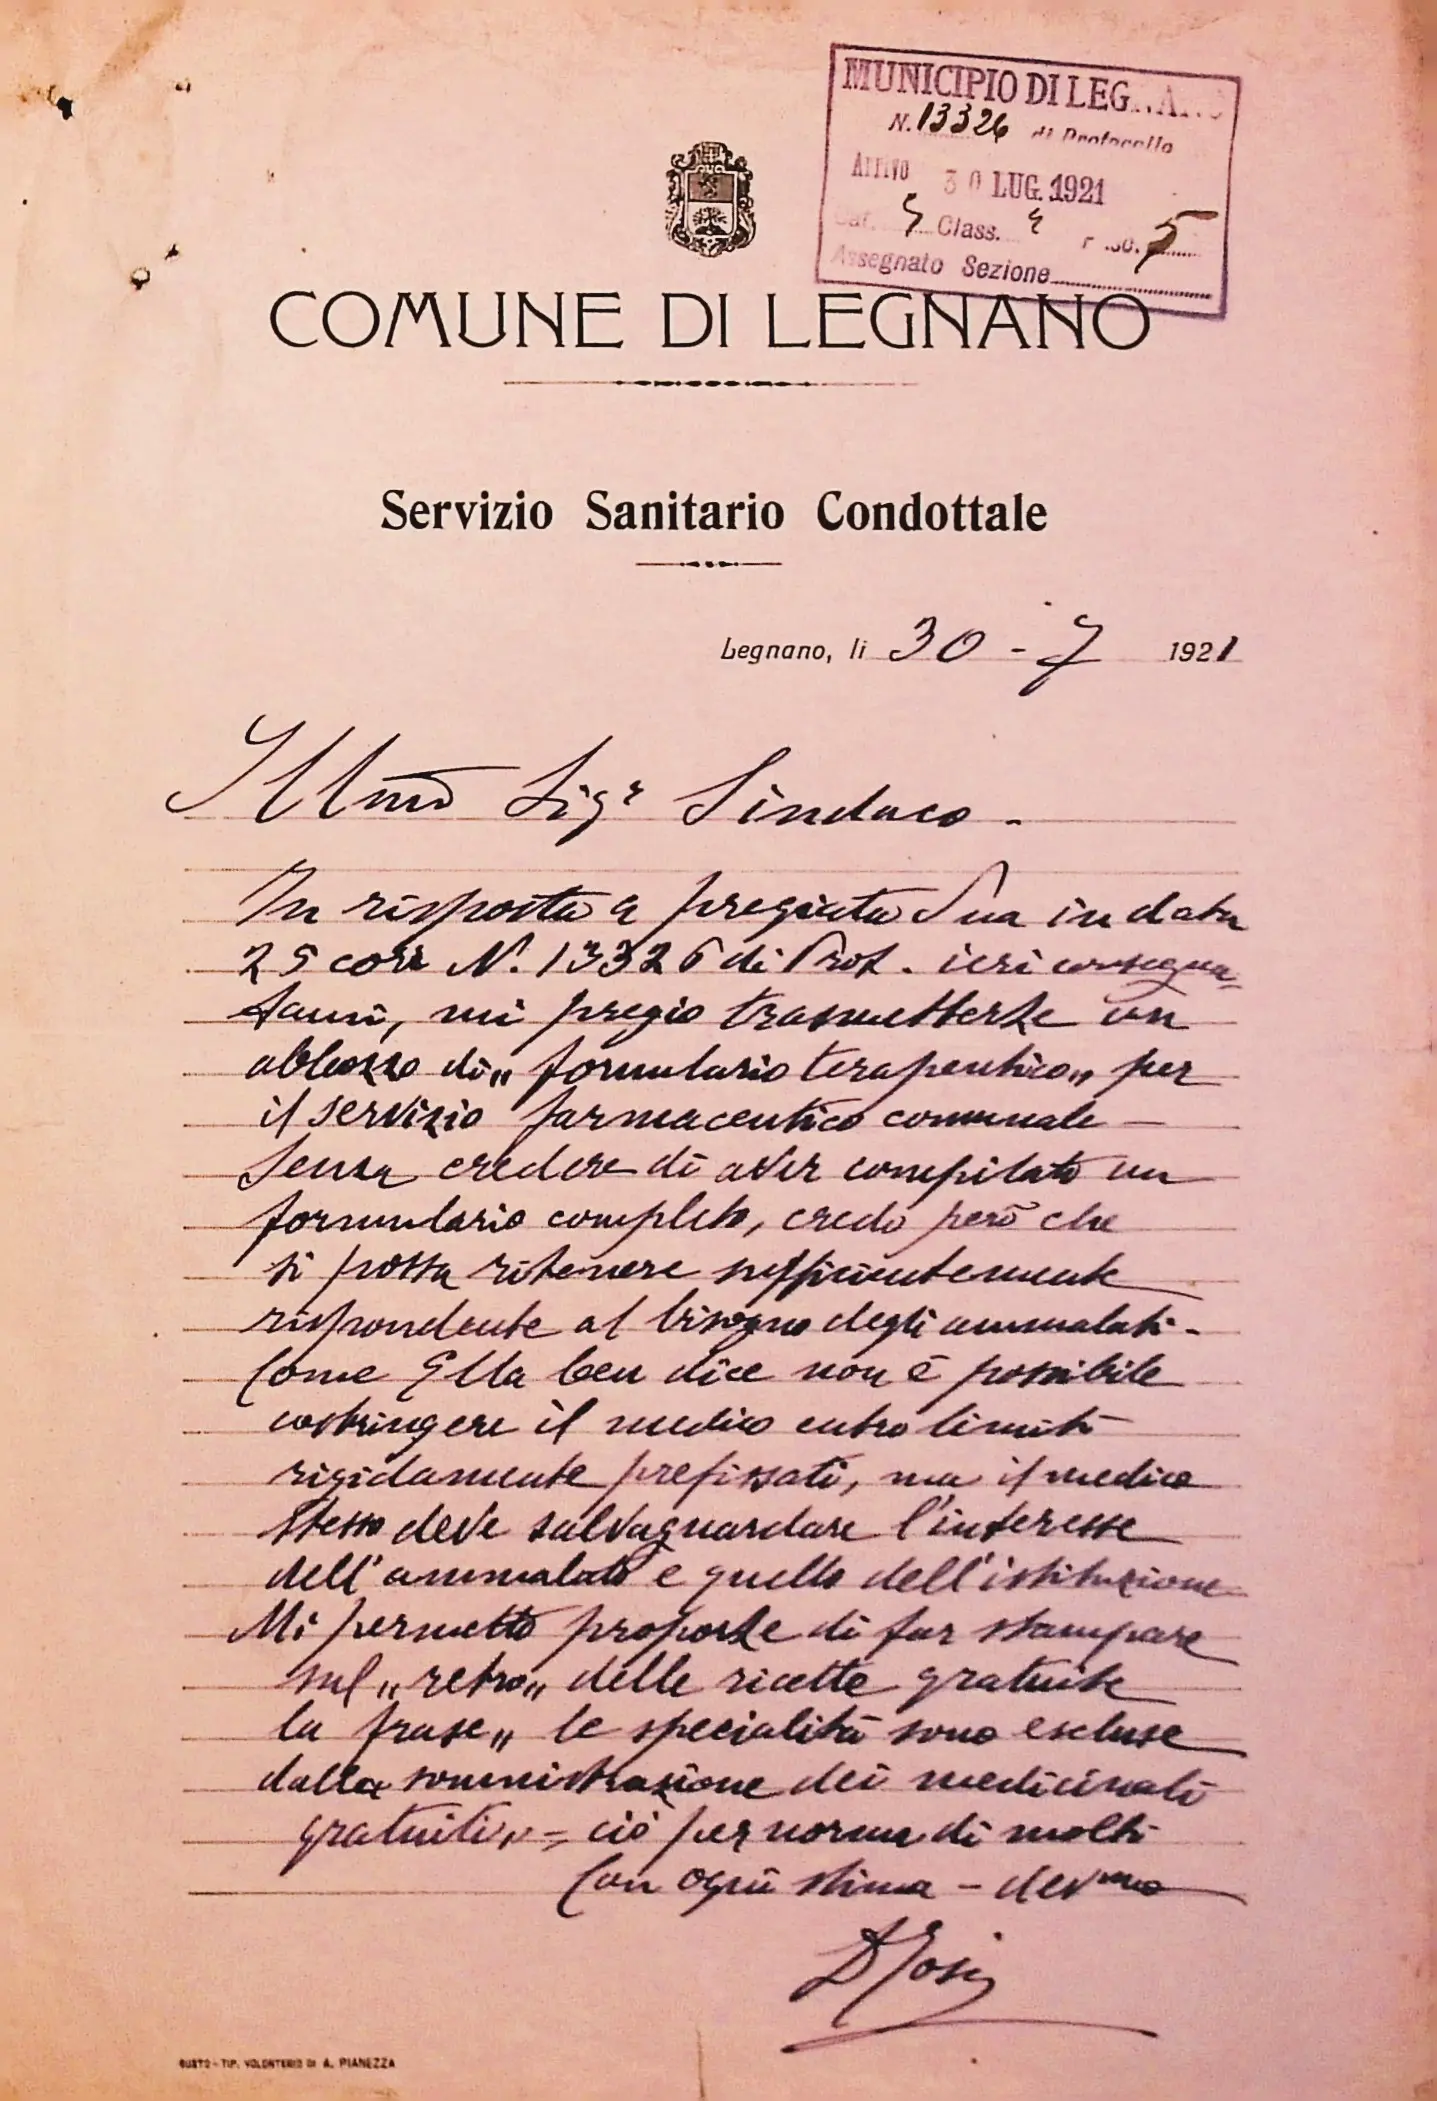 MUNICIPIO DI LEGNANO
N. 13326 di Protocollo
Arrivo 30 LUG. 1921
Cat. 5 Class. 4 Fasc. 5
Assegnato Sezione
COMUNE DI LEGNANO
Servizio Sanitario Condottale
Legnano, li 30 - 7 1921
Illmo Sigr Sindaco -
In risposta a pregiata Sua in data
25 corr N. 13326 di Prot. ieri consegna-
tami, mi pregio trasmetterLe un
abbozzo di „ formulario terapeutico „ per
il servizio farmaceutico comunale -
Senza credere di aver compilato un
formulario completo, credo però che
si possa ritenere sufficientemente
rispondente al bisogno degli ammalati -
Come Ella ben dice non è possibile
costringere il medico entro limiti
rigidamente prefissati, ma il medico
stesso deve salvaguardare l'interesse
dell'ammalato e quello dell'istituzione
Mi permetto proporLe di far stampare
sul „ retro „ delle ricette gratuite
la frase „ le specialità sono escluse
dalla somministrazione dei medicinali
gratuiti „ = ciò per norma di molti
Con ogni stima - devmo
BUSTO - TIP. VOLONTERIO DI A. PIANEZZA